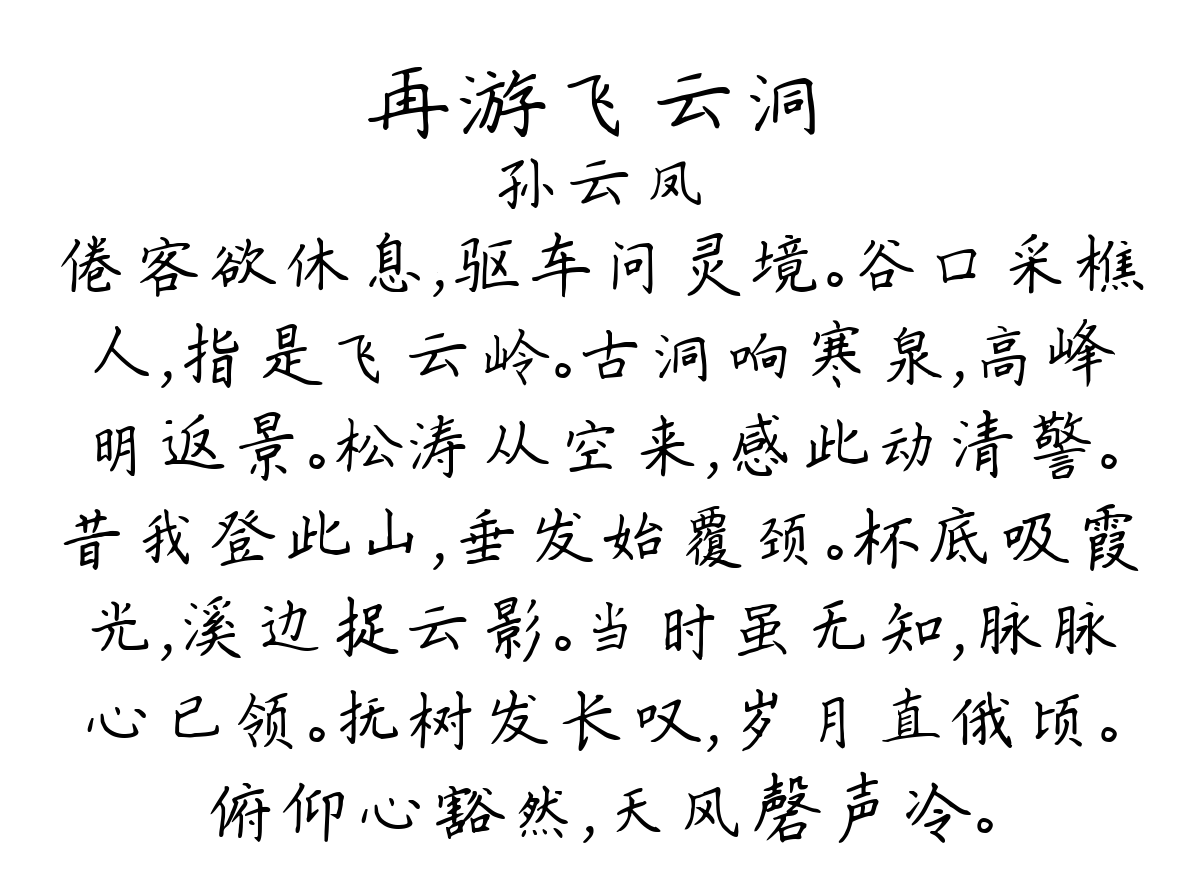 再游飞云洞
孙云凤
倦客欲休息,驱车问灵境。谷口采樵
人,指是飞云岭。古洞响寒泉,高峰
明返景。松涛从空来,感此动清警。
昔我登此山,垂发始覆颈。杯底吸霞
光,溪边捉云影。当时虽无知,脉脉
心已领。抚树发长叹,岁月直俄顷。
俯仰心豁然,天风磬声冷。